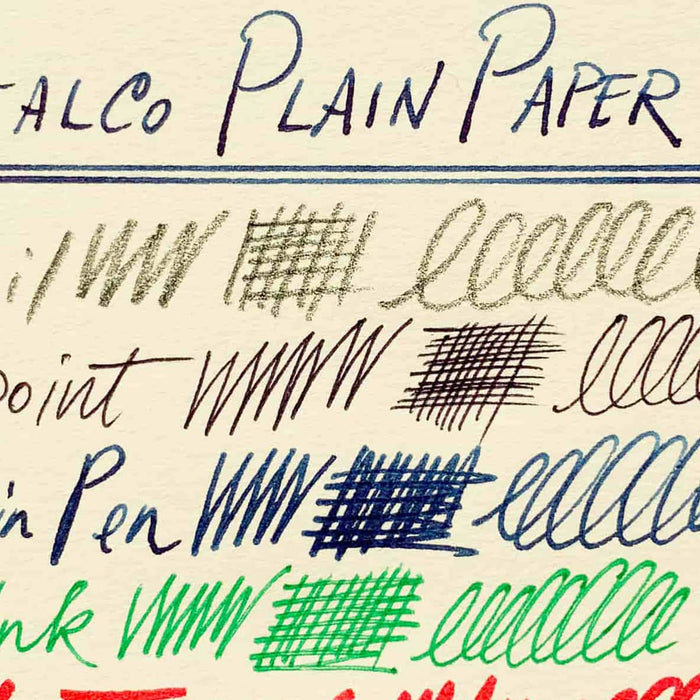 ALCO PLAIN PAPER
il
point
in Pen
Ink